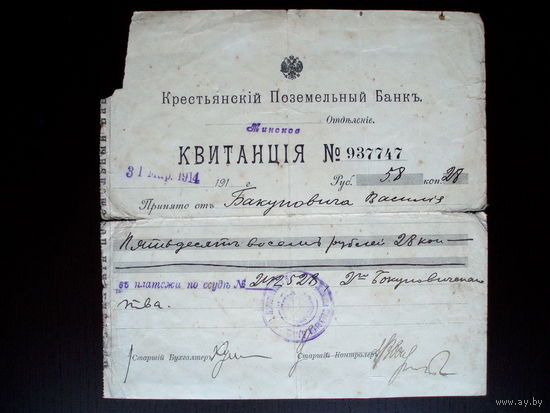 Крестьянскій Поземельный Банкъ.
Минское Отдѣленіе.
КВИТАНЦІЯ № 937747
31 мар. 1914 191 г. Руб. 58 коп. 28
Принято отъ Бакуновича Василія
Пятьдесятъ восемь рублей 28 коп
въ платежи по ссудѣ № 242528
тва.
Старшій Бухгалтеръ Старшій Контролеръ
www.ay.by